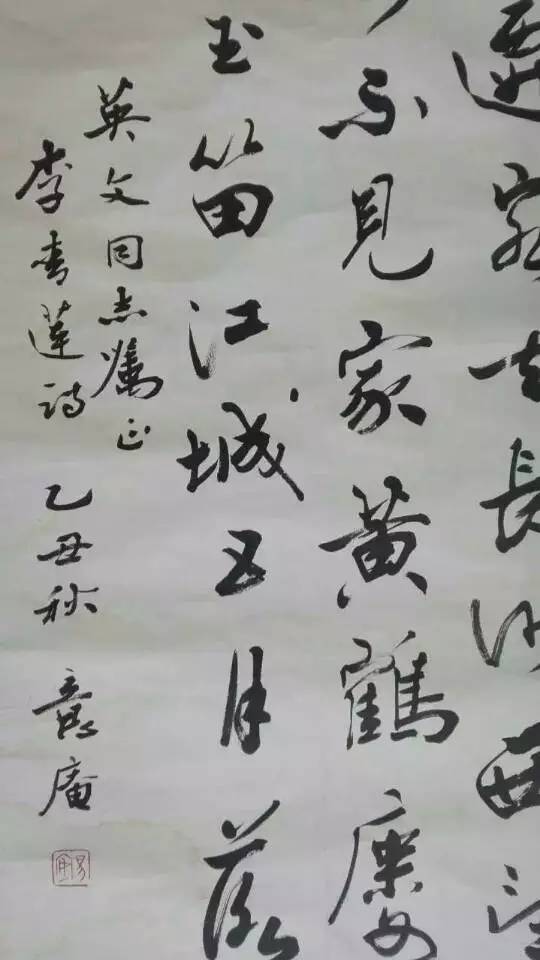 遷客去長沙西望
不見家黄鶴樓
玉笛江城五月落
英文同志屬正
李青蓮詩 乙丑秋 意庵